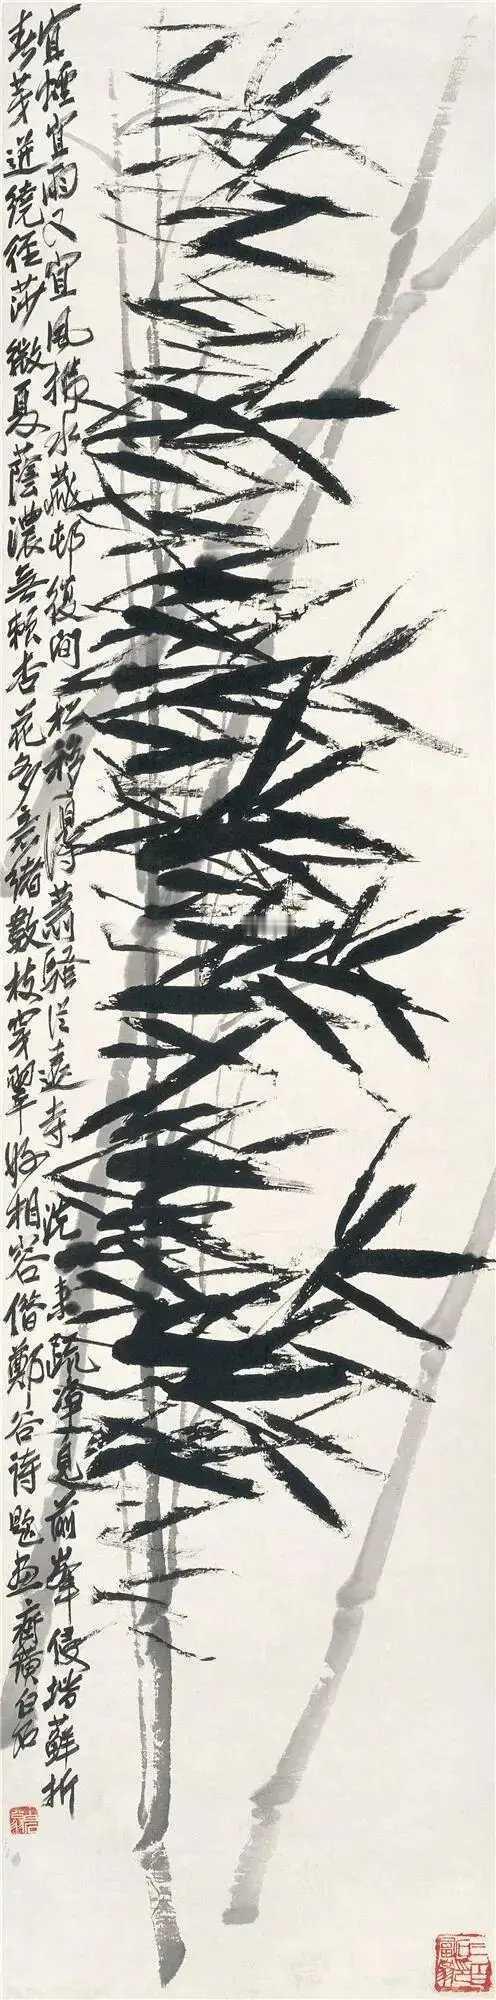 宜煙宜雨又宜風拂水藏邨復間松移得蕭騷從遠寺洗來疏淨見前峯侵堦蘚折
春芽迸繞徑莎微夏蔭濃無賴杏花多意緒數枝穿翠好相容借鄭谷詩題畫齊璜白石